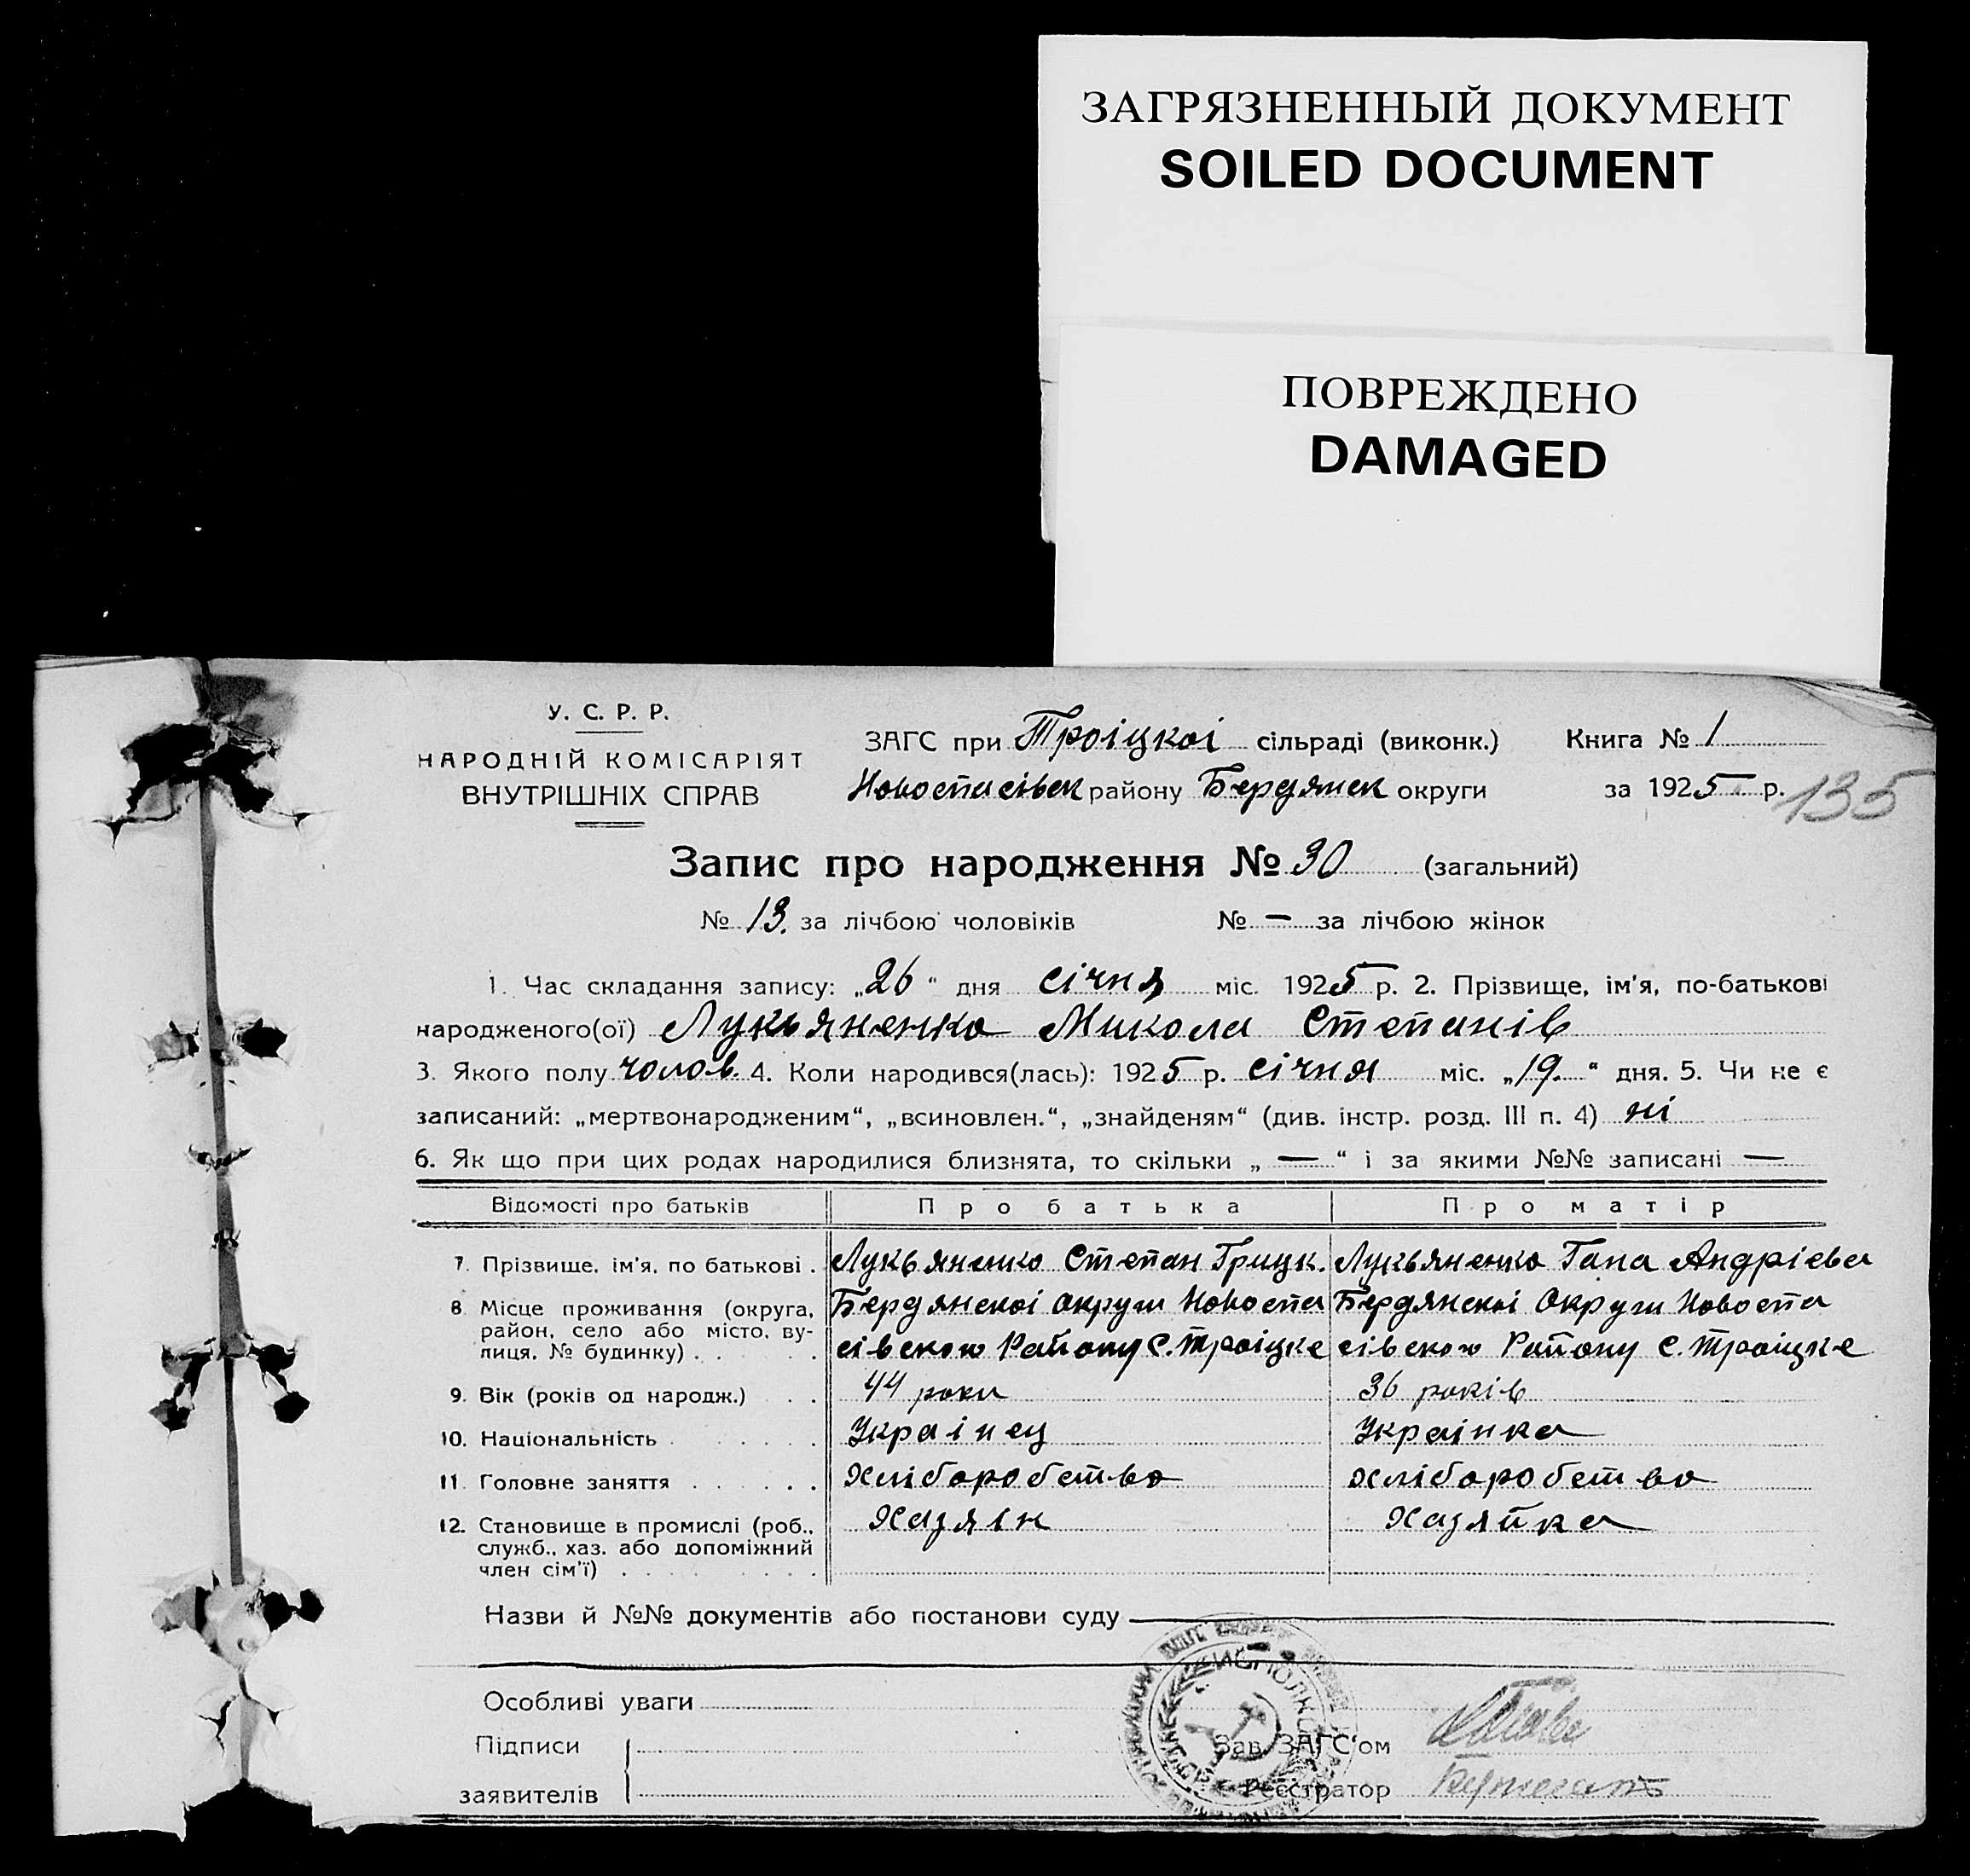 ЗАГРЯЗНЕННЫЙ ДОКУМЕНТ
SOILED DOCUMENT
ПОВРЕЖДЕНО
DAMAGED
У. С. Р. Р.
НАРОДНІЙ КОМІСАРІЯТ
ВНУТРІШНІХ СПРАВ
ЗАГС при Троіцкоі сільраді (виконк.) Книга № 1
Новоспасівск району Бердянск округи за 1925 р. 135
Запис про народження № 30 (загальний)
№ 13. за лічбою чоловіків № — за лічбою жінок
1. Час складання запису: „26“ дня січня міс. 1925 р. 2. Прізвище, ім'я, по-батькові
народженого(ої) Лукьяненко Микола Степанів
3. Якого полу чолов. 4. Коли народився(лась): 1925 р. січня міс. „19.“ дня. 5. Чи не є
записаний: „мертвонародженим“, „всиновлен.“, „знайденям“ (див. інстр. розд. III п. 4) ні
6. Як що при цих родах народилися близнята, то скільки „ — “ і за якими №№ записані —
Відомості про батьків Про батька Про матір
7. Прізвище, ім'я, по батькові . Лукьяненко Степан Грицк. Лукьяненко Гапа Андрієва
8. Місце проживання (округа, Бердянскоі Округи Новоспа Бердянскоі Округи Новоспа
район, село або місто, ву-
лиця, № будинку) . . . . сівского Району С. Троіцке сівского Району С. Троіцке
9. Вік (років од народж.) . . 44 роки 36 років
10. Національність . . . . . Украінец Украінка
11. Головне заняття . . . . . Хліборобство Хліборобство
12. Становище в промислі (роб., Хазяін Хазяйка
служб., хаз. або допоміжний
член сім'ї) . . . . . . .
Назви й №№ документів або постанови суду
Особливі уваги
Підписи Зав. ЗАГС'ом
заявителів Реєстратор